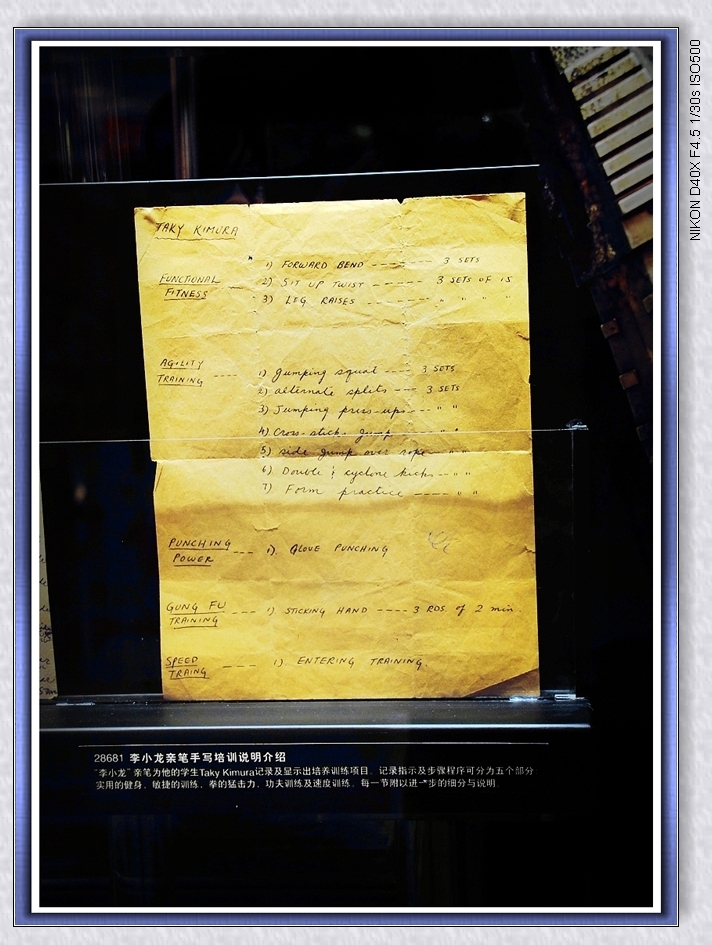 TAKY KIMURA
FUNCTIONAL FITNESS ---
1) FORWARD BEND ------- 3 SETS
2) SIT UP TWIST ------- 3 SETS OF 15
3) LEG RAISES ------- " " " "
AGILITY TRAINING ----
1) Jumping squat ---- 3 SETS
2) alternate splits --- 3 SETS
3) Jumping press-ups --- " "
4) Cross-stick jump --- " "
5) side jump over rope --- " "
6) Double & cyclone kicks --- " "
7) Form practice ---- " "
PUNCHING POWER --- 1) GLOVE PUNCHING
GUNG FU TRAINING --- 1) STICKING HAND ---- 3 RDS. of 2 min.
SPEED TRAING ---- 1) ENTERING TRAINING.
28681 李小龙亲笔手写培训说明介绍
"李小龙"亲笔为他的学生Taky Kimura记录及显示出培养训练项目。记录指示及步骤程序可分为五个部分:
实用的健身、敏捷的训练、拳的猛击力、功夫训练及速度训练。每一节附以进一步的细分与说明。
NIKON D40X F4.5 1/30s ISO500